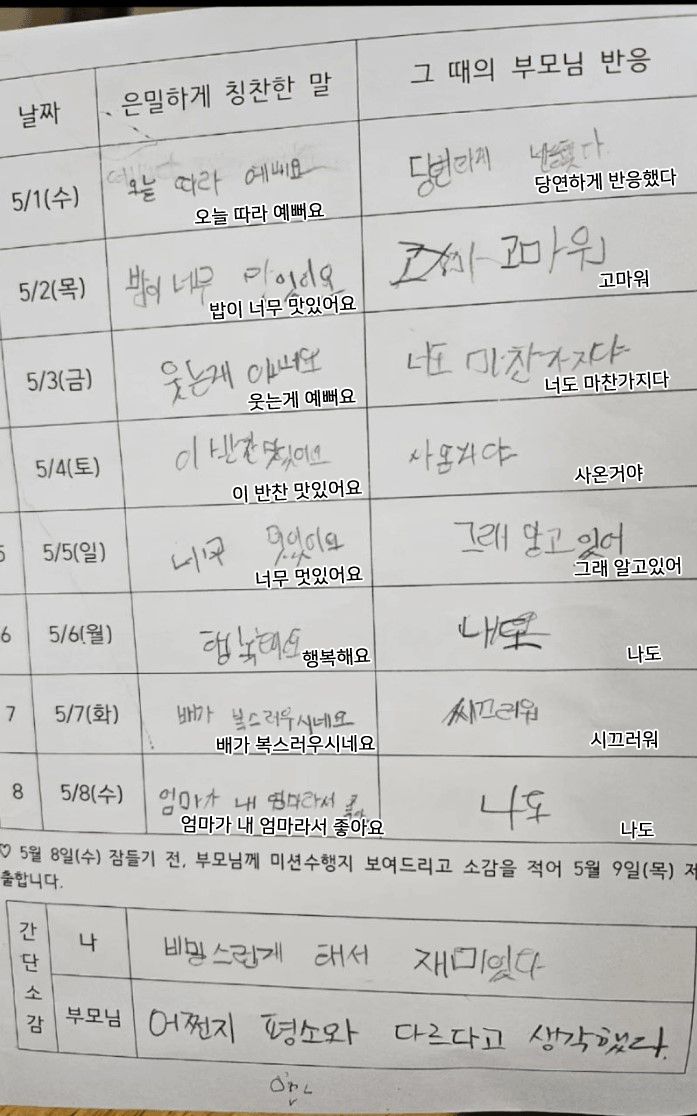 날짜
은밀하게 칭찬한 말
그 때의 부모님 반응
5/1(수)
오늘 따라 예뻐요
오늘 따라 예뻐요
당연하게 반응했다
5/2(목)
밥이 너무 맛있어요
밥이 너무 맛있어요
고마워
고마워
5/3(금)
웃는게 예뻐요
웃는게 예뻐요
너도 마찬가지다
너도 마찬가지다
5/4(토)
이 반찬 맛있어요
이 반찬 맛있어요
사온거야
사온거야
5
5/5(일)
너무 멋있어요
너무 멋있어요
그래 알고 있어
그래 알고있어
6
5/6(월)
행복해요
행복해요
나도
나도
7
5/7(화)
배가 복스러우시네요
배가 복스러우시네요
시끄러워
시끄러워
8
5/8(수)
엄마가 내 엄마라서 좋아
엄마가 내 엄마라서 좋아요
나도
나도
♡ 5월 8일(수) 잠들기 전, 부모님께 미션수행지 보여드리고 소감을 적어 5월 9일(목) 제
출합니다.
간단소감
나
비밀스럽게 해서 재미있다
부모님
어쩐지 평소와 다르다고 생각했다.